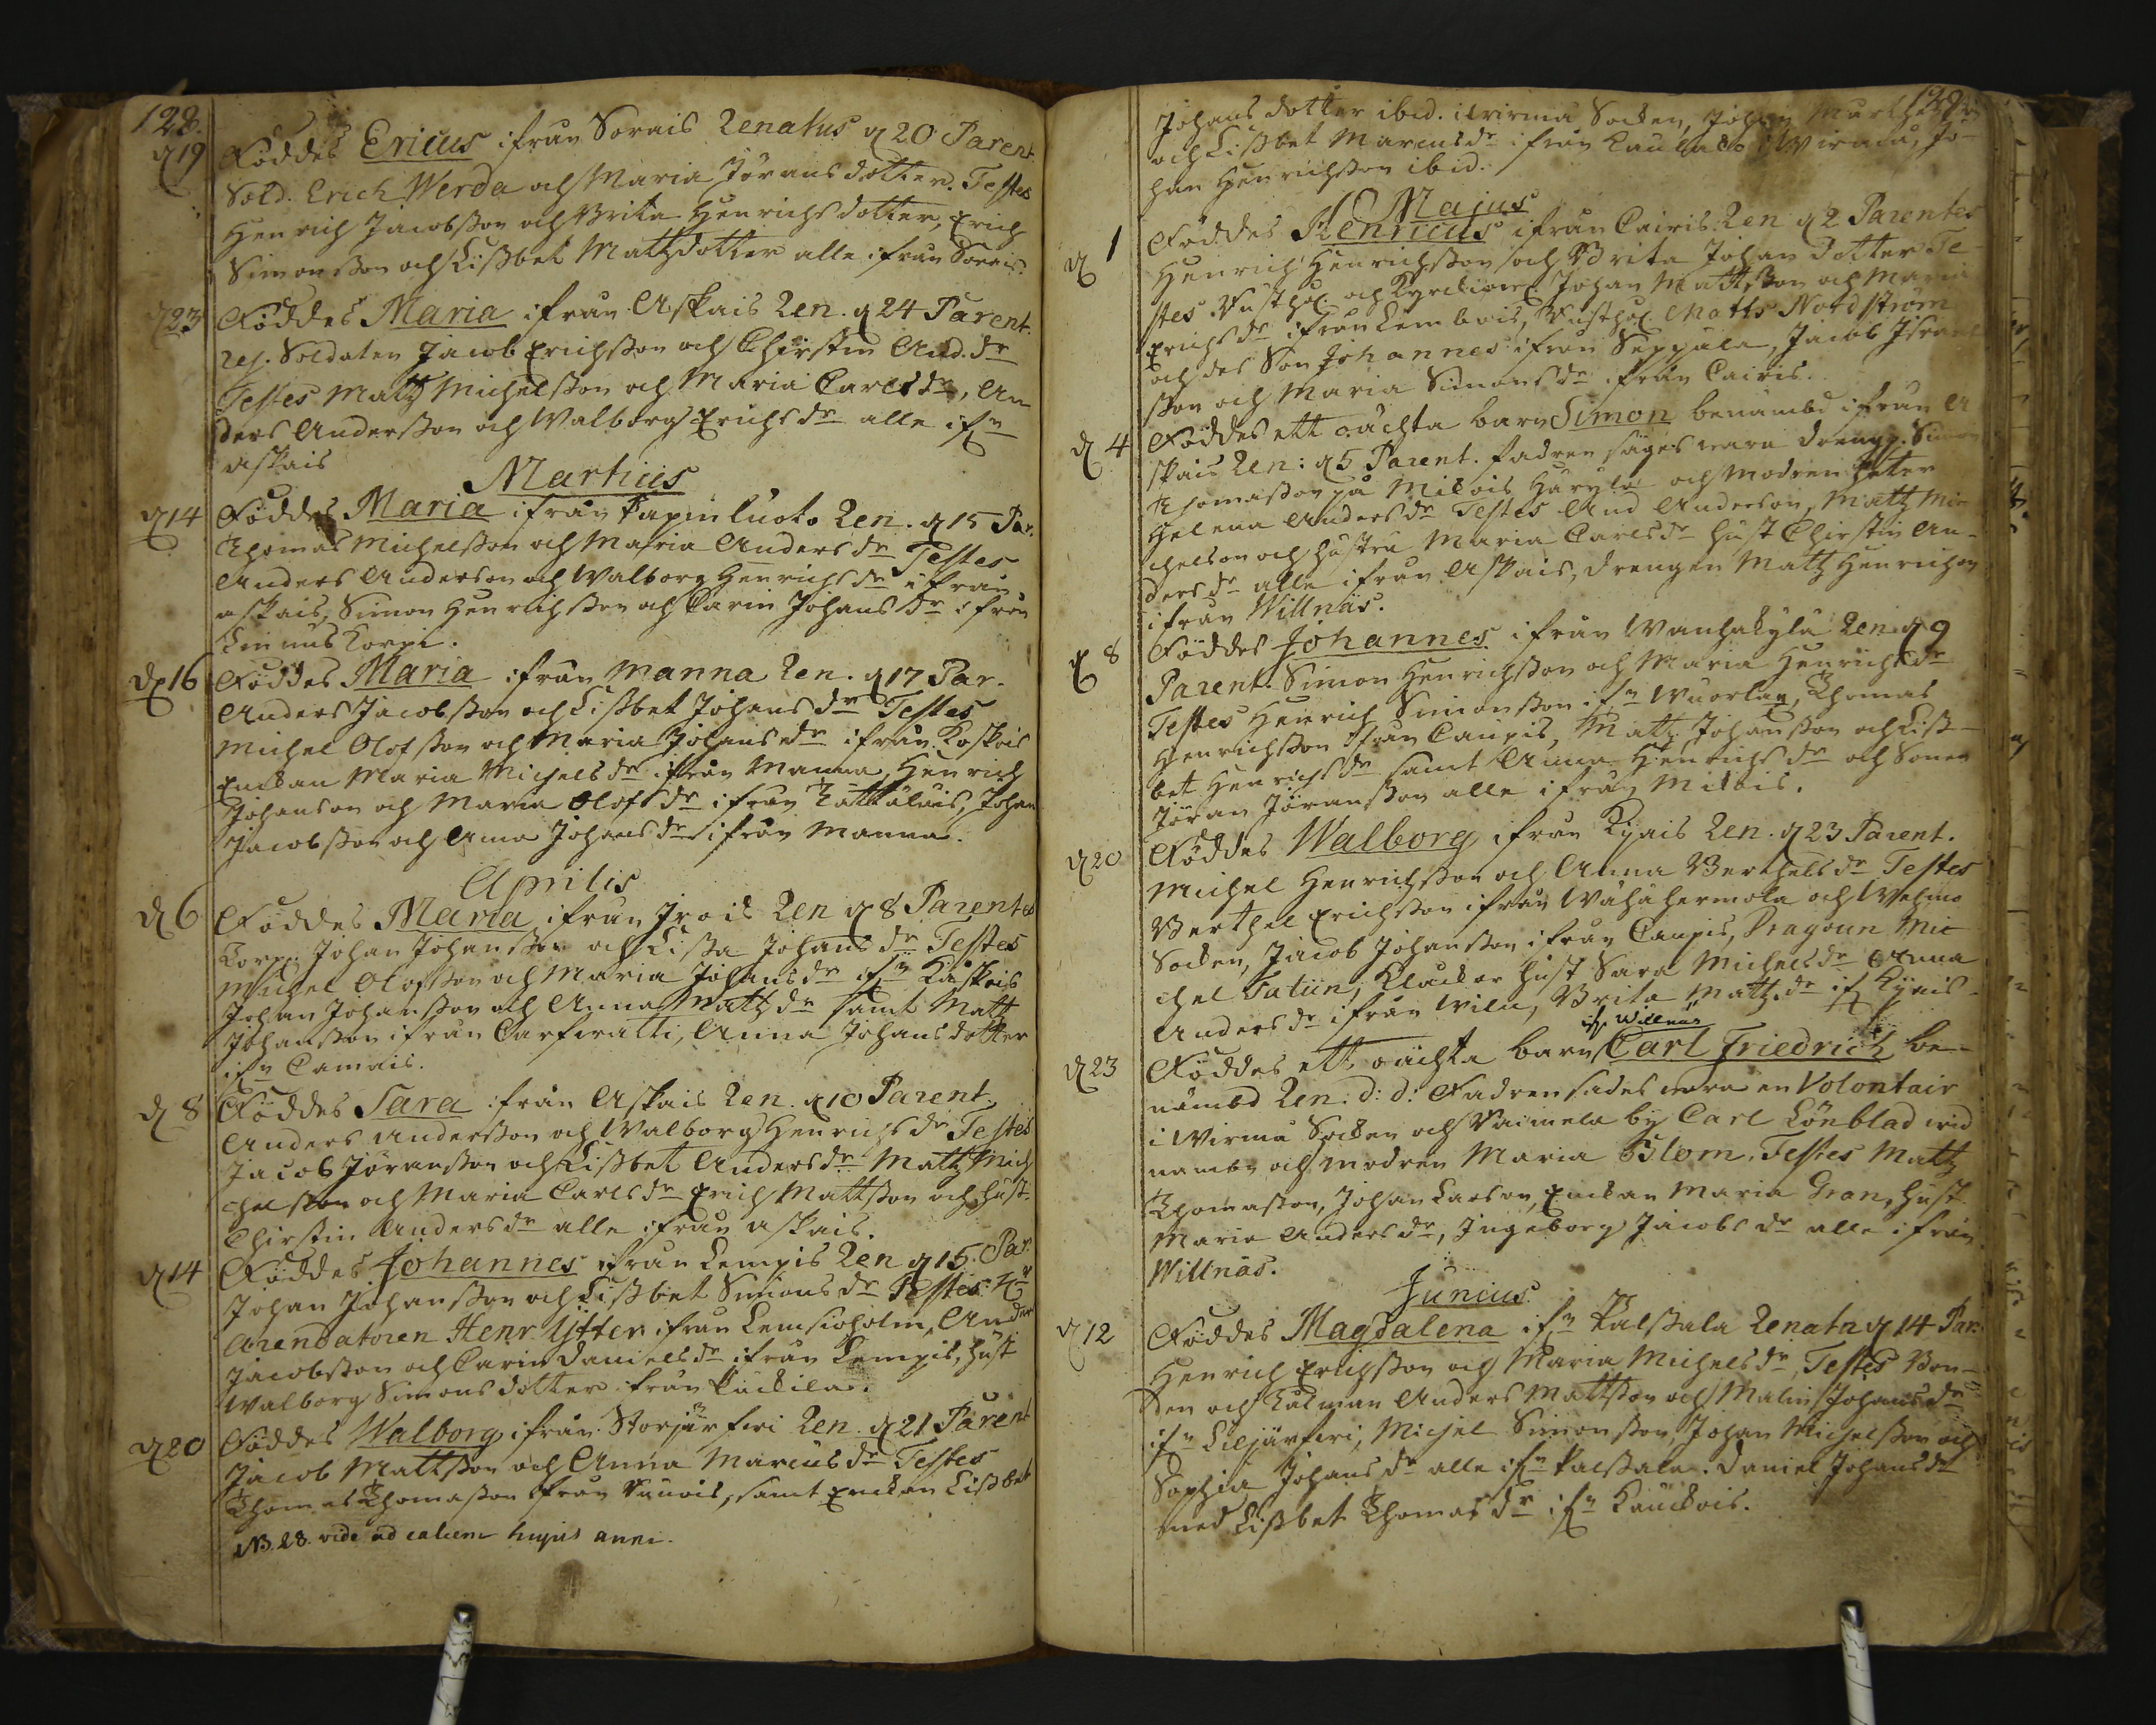 128.
d. 19 Föddes Ericus ifrån Sorais Renatus d. 20 Parent.
Sold. Erich Werda och Maria Jöransdotter. Testes
Henrich Jacobsson och Brita Henrichsdotter, Erich
Simonsson och Lissbet Matzdotter alle ifrån Sorais.
d. 23 Föddes Maria ifrån Askais Ren. d. 24 Parent.
res. Soldaten Jacob Erichsson och Chirstin And. dr
Testes Matz Michelsson och Maria Carlsdr, An
ders Andersson och Walborg Erichsdr alle ifn
Askais
Martius
d. 14 Föddes Maria ifrån Papinluoto Ren. d. 15 Par.
Thomas Michelsson och Maria Andersdr Testes
Anders Anderson och Walborg Henrichsdr ifrån
askais, Simon Henrichsson och Carin Johansdr ifrån
Linnus Korpi.
d. 16 Föddes Maria ifrån Manna Ren. d. 17 Par.
Anders Jacobsson och Lissbet Johansdr Testes
Michel Olofsson och Maria Johansdr ifrån Koskois
Enckan Maria Michelsdr ifrån Manna, Henrich
Johanson och Maria Olofsdr ifrån Tattulais, Johan
Jacobsson och Anna Johansdr ifrån Manna.
Aprilis
d. 6 Föddes Maria ifrån Irois Ren d. 8 Parentes
Korp. Johan Johansson och Lissa Johansdr Testes
Michel Olofsson och Maria Johansdr ifn Kaskois
Johan Johansson och Anna Matzdr samt Matt
Johansson ifrån Carfwatti, Anna Johansdotter
ifn Camois.
d. 8 Föddes Sara ifrån Askais Ren. d. 10 Parent.
Anders Andersson och Walborg Henrichsdr Testes
Jacob Jöransson och Lissbet Andersdr Matz Mich
chelsson och Maria Carlsdr Erich Mattsson och Hust.
Chirstin Andersdr alle ifrån askais.
d. 14 Föddes Johannes ifrån Lempis Ren d. 15. Par.
Johan Johansson och Lissbet Simonsdr Testes: Hr
Arendatoren Henr. Ytter ifrån Lemsioholm, Ander
Jacobsson och Carin Danielsdr ifrån Lempis, Hust
Walborg Simonsdotter ifrån Puckila.
d. 20 Föddes Walborg ifrån Storjärfwi Ren. d. 21 Parent
Jacob Mattsson och Anna Marcusdr Testes
Thomas Thomasson ifrån Runois, samt Enckan Lissbet
NB. 28. vide ad calcem hujus anni.
129.
Johansdotter ibid. i Wirma Socken, Johan
och Lissbet Marcusdr ifrån Kaulako i Wirma, Jo-
han Henrichsson ibid.
Majus
d. 1 Föddes Henricus ifrån Cairis: Ren d. 2 Parentes
Henrich Henrichsson och Brita Johan dotter Te-
stes. Rusthol. och Kyrckiow. Johan Mattsson och Maria
Erichsdr ifrån Lembois, Rusthol. Matts Nordström
och des Son Johannes ifrån Seppäla, Jacob Israel
sson och Maria Simonsdr ifrån Cairis.
d. 4 Föddes ett oächta barn Simon benämbd ifrån A
skais Ren: d. 5 Parent. fadren säges wara drengen Simon
Thomasson på Milois Härylä och Modren heter
Helena Andersdr Testes And Anderson, Matz Mi
chelson och hustru Maria Carlsdr hust Chirstin An-
dersdr alle ifrån Askais, drengen Matz Henrichson
ifrån Willnäs.
d. 8 Föddes Johannes ifrån Wanhakylä Ren d. 9
Parent. Simon Henrichsson och Maria Henrichsdr
Testes Henrich Simonsson ifn Wuorlax, Thomas
Henrichsson ifrån Caupis, Matz Johansson och Liss-
bet Henrichsdr samt Anna Henrichsdr och Sonen
Jöran Jöransson alle ifrån Milois.
d. 20 Föddes Walborg ifrån Kyais Ren. d. 23 Parent.
Michel Henrichsson och Anna Berthelsdr Testes
Berthel Erichsson ifrån Wähähermola och Wehmo
Socken, Jacob Johansson ifrån Caupis, Dragoun Mi
chel Tatiin, Klockar hust Sara Michelsdr Anna
Andersdr ifrån Wilu, Brita Matz. dr if Kyais-
if. Willnäs
d. 23 Föddes ett oächta barn Carl Friedrich be-
nämbd Ren. d: d: Fadren sades wara en Volontair
i Wirma Socken och Raimela by Carl Lönblad wid
nambn och modren Maria Blom. Testes Matz
Thomasson, Johan Larson, Enckan Maria Gran, hust
Maria Andersdr, Ingeborg Jacobsdr alle ifrån
Willnäs.
Junius
d. 12 Föddes Magdalena ifn Palssala Renata d. 14 Par:
Henrich Erichsson och Maria Michelsdr, Testes Bon-
den och Anders Mattsson och Malin Johansdr
ifn Liljärfwi, Michel Simonsson, Johan Michelsson och
Sophia Johansdr alle ifn Palssala. Daniel Johansdr
med Lissbet Thomasdr ifn Kauckois.